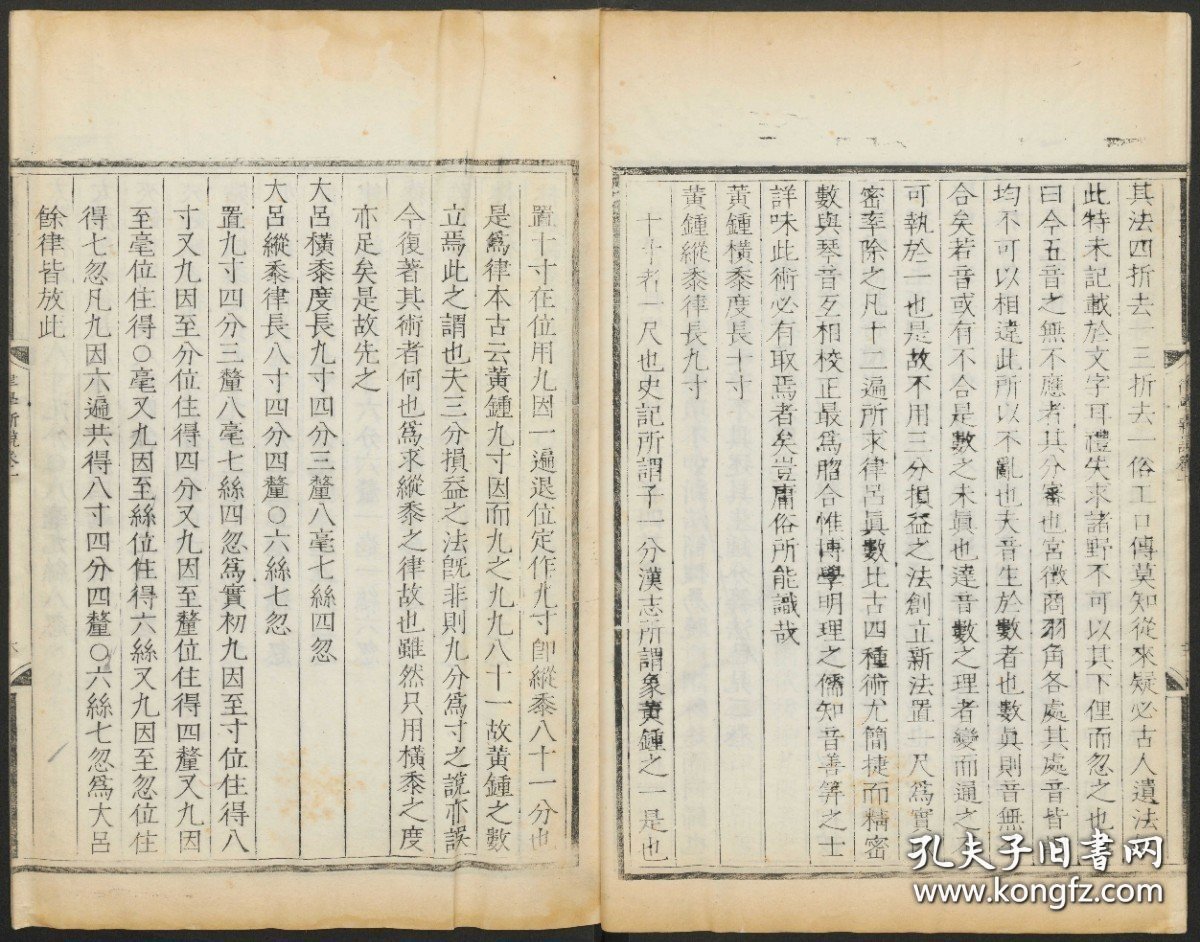 其法四折去一三折去一俗工口傳莫知從來疑必古人遺法
此特未記載於文字耳禮失求諸野不可以其下俚而忽之也
曰今五音之無不應者其分審也宮徵商羽角各處其處音皆
均不可以相違此所以不亂也夫音生於數者也數眞則音無
合矣若音或有不合是數之未眞也達音數之理者變而通之
可執於一也是故不用三分損益之法創立新法置一尺爲實
密率除之凡十二遍所求律呂眞數比古四種術尤簡捷而精密
數與琴音互相校正最爲脗合惟博學明理之儒知音善筭之士
詳味此術必有取焉者矣豈庸俗所能識哉
黃鍾橫黍度長十寸
黃鍾縱黍律長九寸
十寸者一尺也史記所謂子一分漢志所謂象黃鍾之一是也
置十寸在位用九因一遍退位定作九寸卽縱黍八十一分也
是爲律本古云黃鍾九寸因而九之九九八十一故黃鍾之數
立焉此之謂也夫三分損益之法旣非則九分爲寸之說亦誤
今復著其術者何也爲求縱黍之律故也雖然只用橫黍之度
亦足矣是故先之
大呂橫黍度長九寸四分三釐八毫七絲四忽
大呂縱黍律長八寸四分四釐〇六絲七忽
置九寸四分三釐八毫七絲四忽爲實初九因至寸位住得八
寸又九因至分位住得四分又九因至釐位住得四釐又九因
至毫位住得〇毫又九因至絲位住得六絲又九因至忽位住
得七忽凡九因六遍共得八寸四分四釐〇六絲七忽爲大呂
餘律皆放此
律學新說卷一
孔夫子旧書网
www.kongfz.com